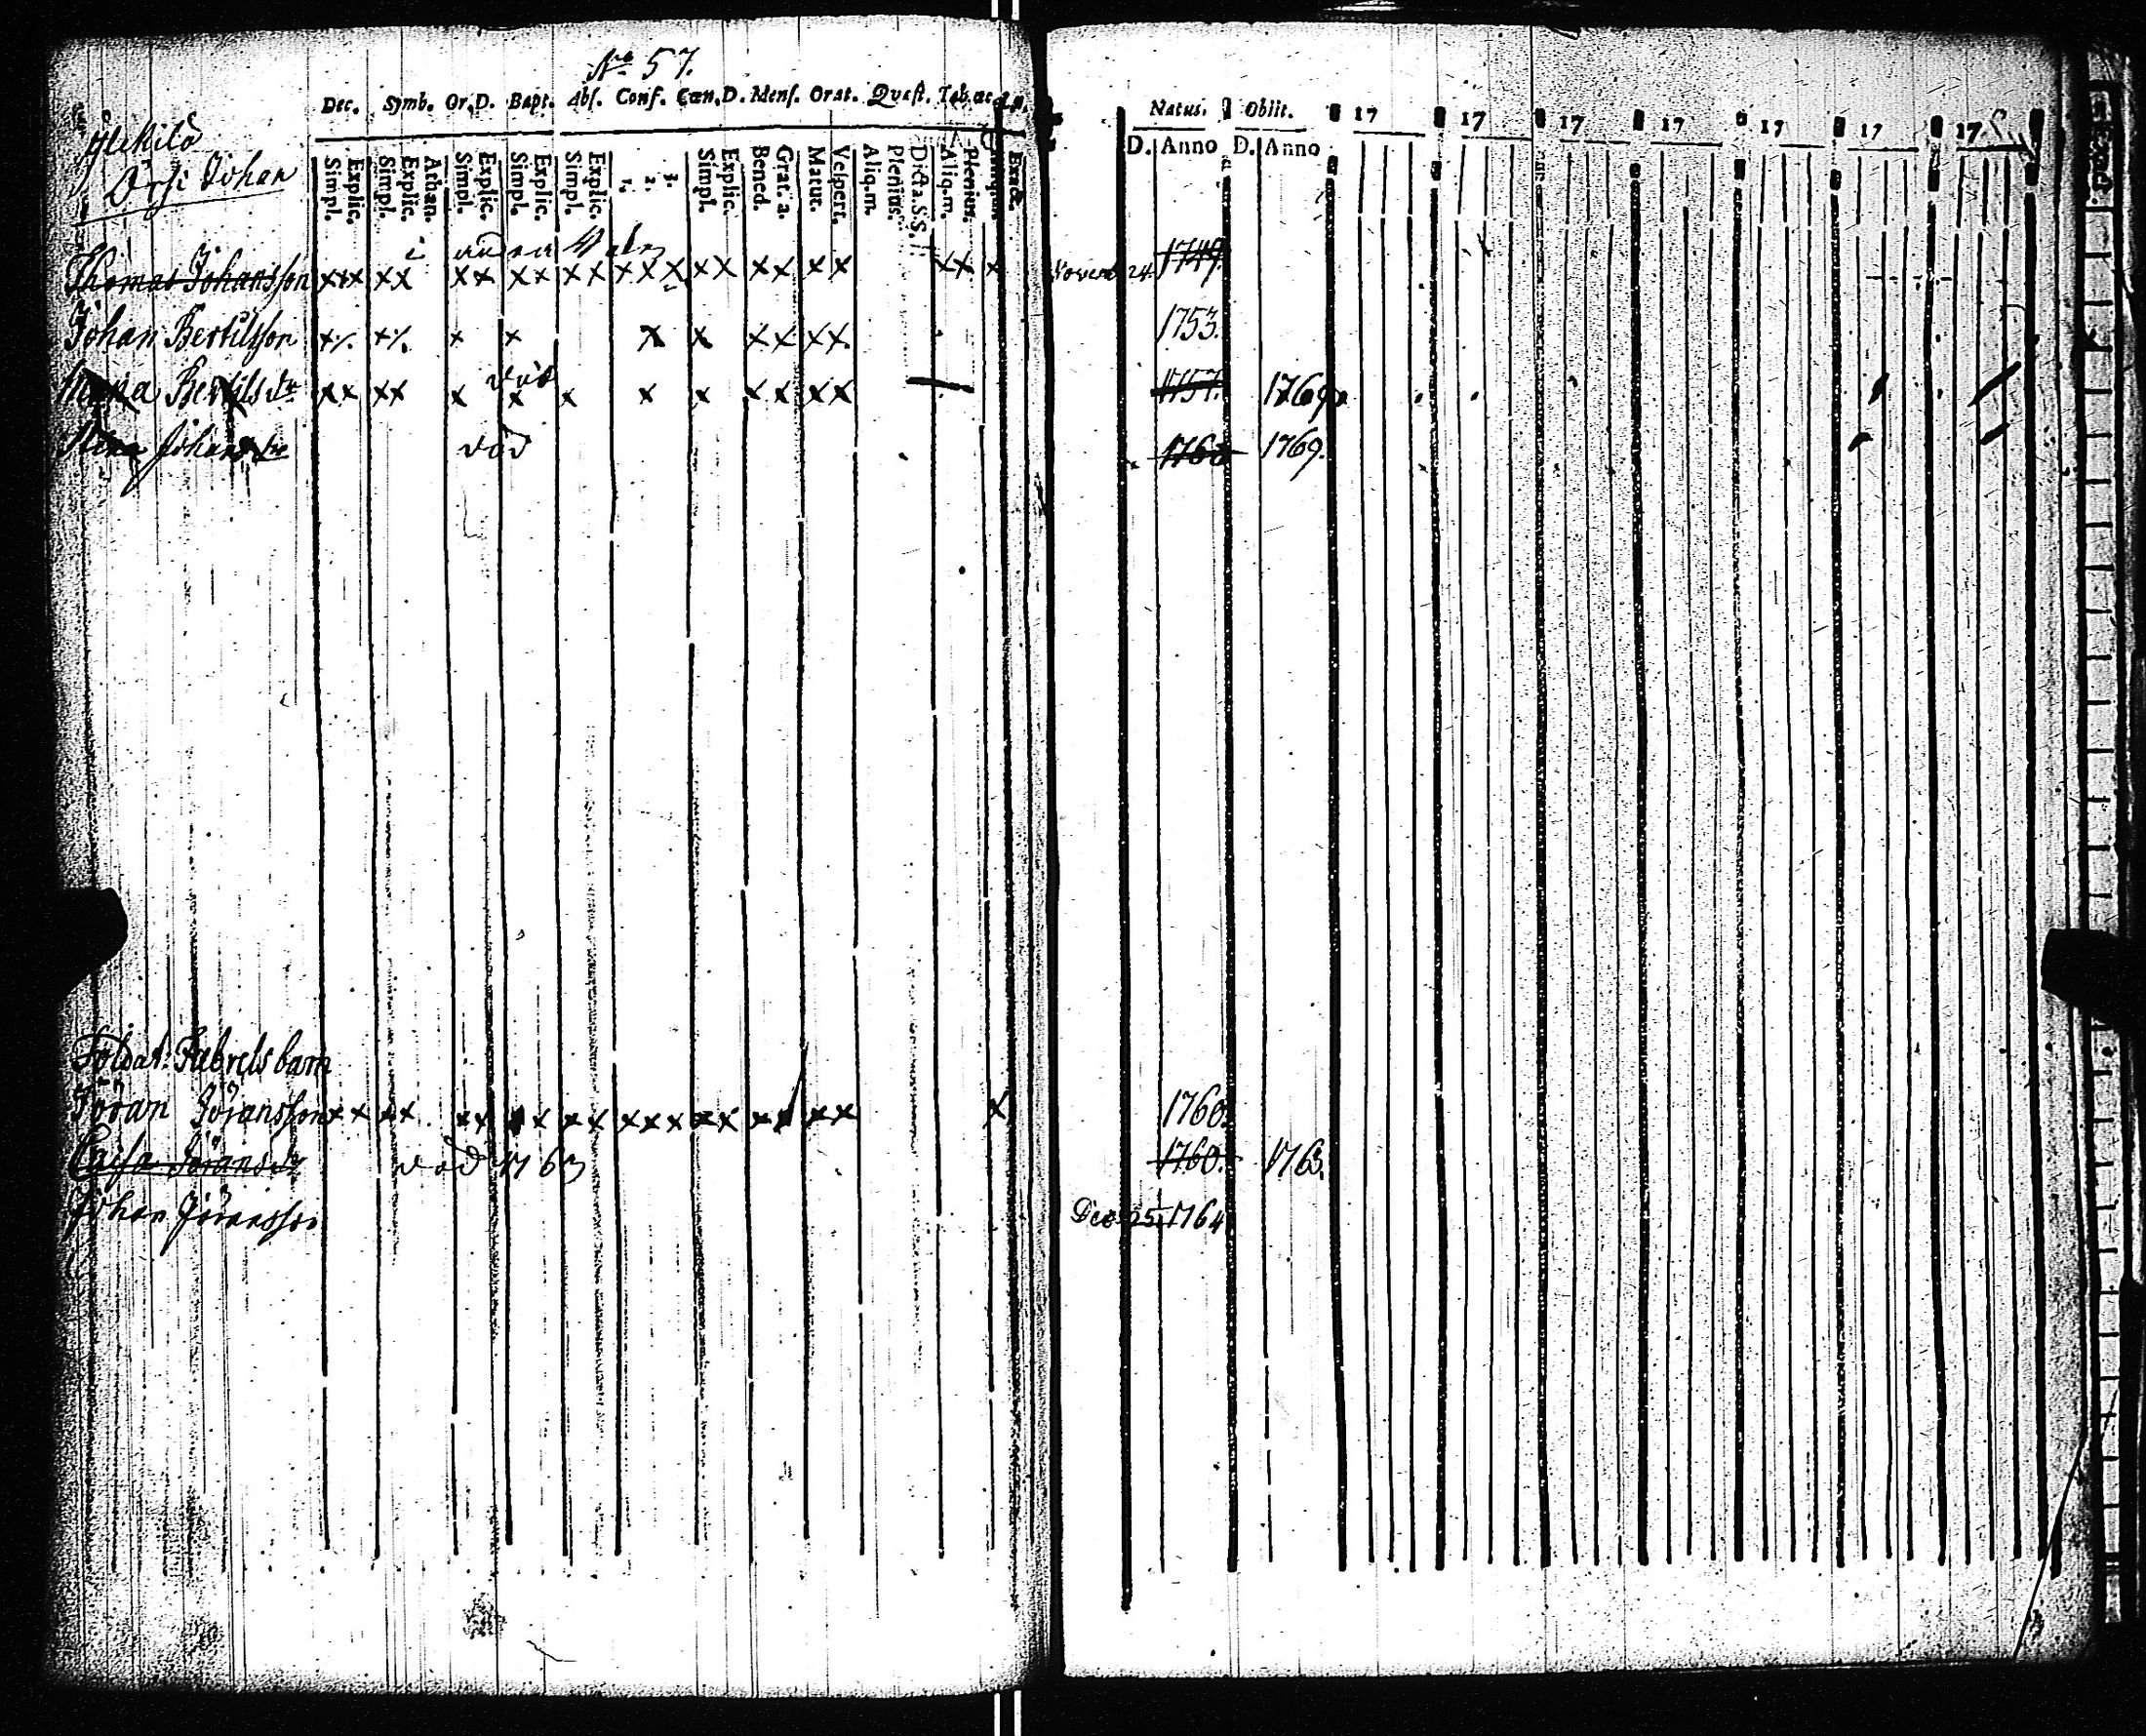 No 57.
Dec. Symb. Or.D. Bapt. Abs. Conf. Cœn.D. Mens. Orat. Quæst. Tab. œc.
Simpl. Explic. Simpl. Explic. Athan. Simpl. Explic. Simpl. Explic. Simpl. Explic. 1. 2. 3. Simpl. Explic. Bened. Grat. a. Matut. Vespert. Aliq.m. Plenius. Dicta.S.S. Aliq.m. Plenius. Exact.
Natus. Obiit. 17 17 17 17 17 17 17
D. Anno D. Anno
Örfi Johan
i andra
Thomas Johansson xxx xx xx xx xx xxx xx xx xx xx x Novemb 24. 1749.
Johan Bertilsson x x x x x x xx xx. 1753.
död
Bertilsdr xx xx x x x x x xx xx 1757. 1769
Johansdr död 1760 1769.
Soldat: barn
Jöran Göransson xx xx xx xx xx xxx xx xx xx x 1760.
Cajsa Göransdr död 1763 1760. 1763.
Johan Göransson Dec 25. 1764